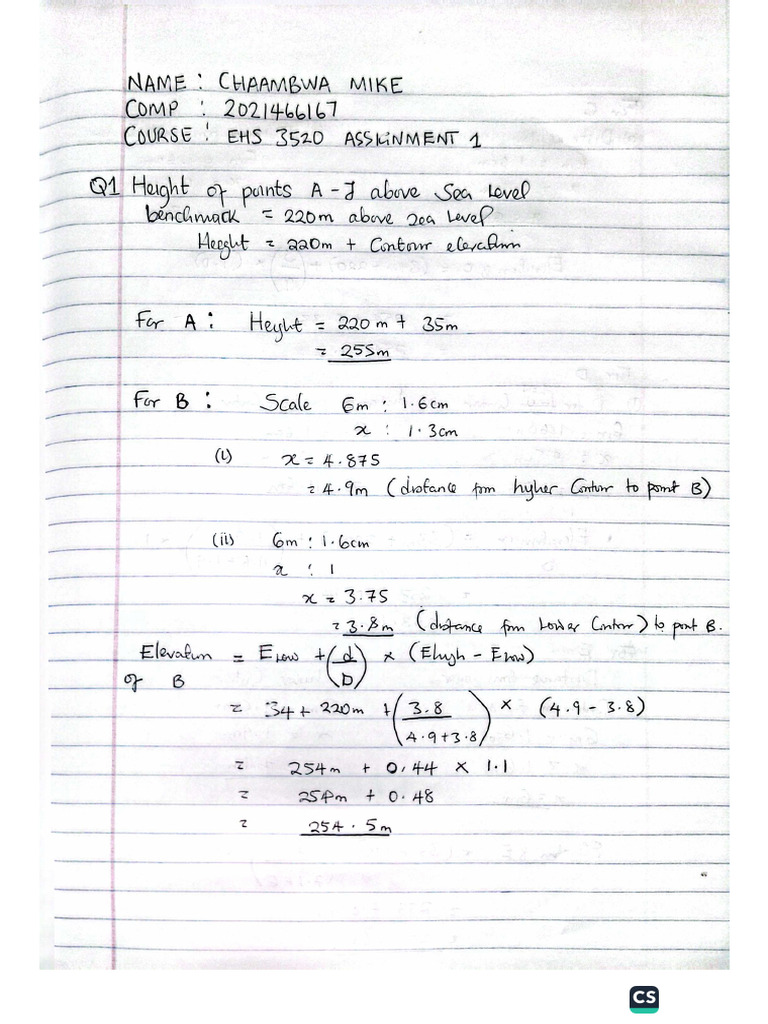 NAME : CHAAMBWA MIKE
COMP : 2021466167
COURSE : EHS 3520 ASSIGNMENT 1
Q1 Height of points A - J above Sea Level
benchmark = 220m above sea Level
Height = 220m + Contour elevation
For A : Height = 220m + 35m
= 255m
For B : Scale 6m : 1.6cm
x : 1.3cm
(i) x = 4.875
= 4.9m (distance from higher Contour to point B)
(ii) 6m : 1.6cm
x : 1
x = 3.75
= 3.8m (distance from Lower Contour) to point B.
Elevation of B = ELow + (d/D) × (Ehigh - Elow)
= 34 + 220m + (3.8/4.9+3.8) × (4.9 - 3.8)
= 254m + 0.44 × 1.1
= 254m + 0.48
= 254.5m
CS